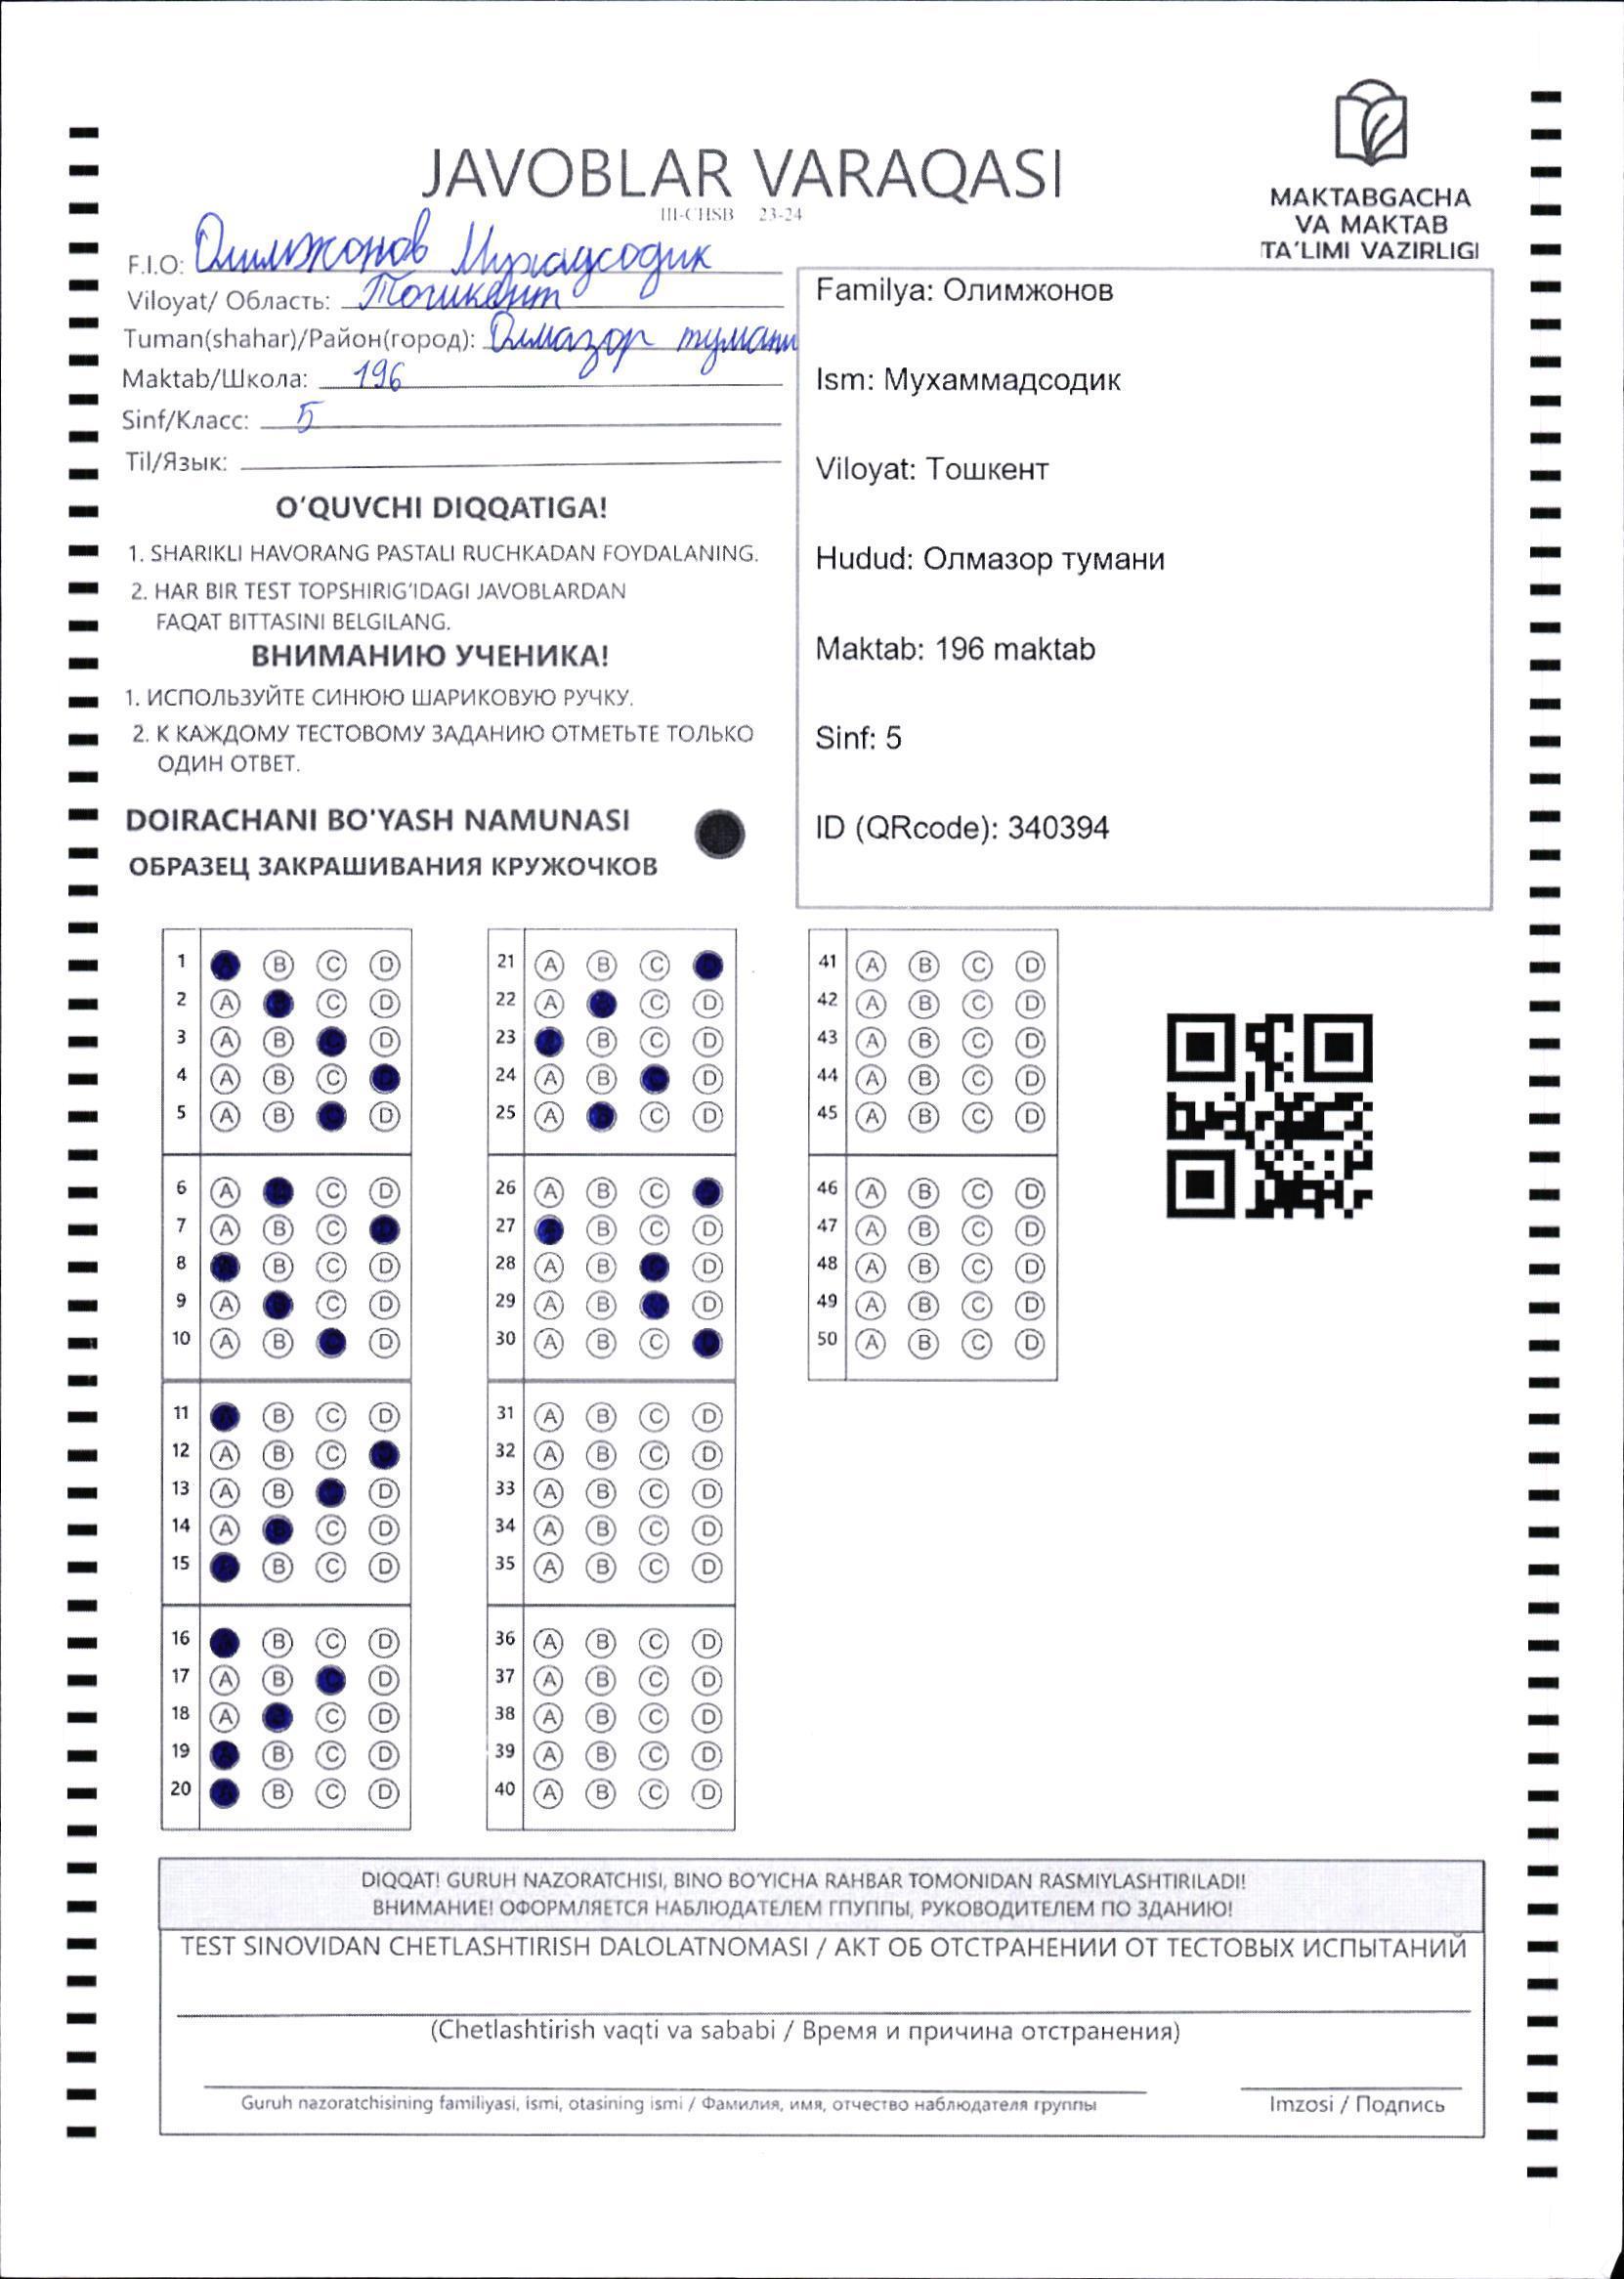 JAVOBLAR VARAQASI
III-CHSB 23-24
MAKTABGACHA
VA MAKTAB
TA'LIMI VAZIRLIGI
F.I.O: Олимжонов Мухадсодик
Viloyat/ Область: Тошкент
Tuman(shahar)/Район(город): Олмазор тумани
Maktab/Школа: 196
Sinf/Класс: 5
Til/Язык:
O'QUVCHI DIQQATIGA!
1. SHARIKLI HAVORANG PASTALI RUCHKADAN FOYDALANING.
2. HAR BIR TEST TOPSHIRIG'IDAGI JAVOBLARDAN
FAQAT BITTASINI BELGILANG.
ВНИМАНИЮ УЧЕНИКА!
1. ИСПОЛЬЗУЙТЕ СИНЮЮ ШАРИКОВУЮ РУЧКУ.
2. К КАЖДОМУ ТЕСТОВОМУ ЗАДАНИЮ ОТМЕТЬТЕ ТОЛЬКО
ОДИН ОТВЕТ.
DOIRACHANI BO'YASH NAMUNASI
ОБРАЗЕЦ ЗАКРАШИВАНИЯ КРУЖОЧКОВ
Familya: Олимжонов
Ism: Мухаммадсодик
Viloyat: Тошкент
Hudud: Олмазор тумани
Maktab: 196 maktab
Sinf: 5
ID (QRcode): 340394
1 A B C D
2 A B C D
3 A B C D
4 A B C D
5 A B C D
6 A B C D
7 A B C D
8 A B C D
9 A B C D
10 A B C D
11 A B C D
12 A B C D
13 A B C D
14 A B C D
15 A B C D
16 A B C D
17 A B C D
18 A B C D
19 A B C D
20 A B C D
21 A B C D
22 A B C D
23 A B C D
24 A B C D
25 A B C D
26 A B C D
27 A B C D
28 A B C D
29 A B C D
30 A B C D
31 A B C D
32 A B C D
33 A B C D
34 A B C D
35 A B C D
36 A B C D
37 A B C D
38 A B C D
39 A B C D
40 A B C D
41 A B C D
42 A B C D
43 A B C D
44 A B C D
45 A B C D
46 A B C D
47 A B C D
48 A B C D
49 A B C D
50 A B C D
DIQQAT! GURUH NAZORATCHISI, BINO BO'YICHA RAHBAR TOMONIDAN RASMIYLASHTIRILADI!
ВНИМАНИЕ! ОФОРМЛЯЕТСЯ НАБЛЮДАТЕЛЕМ ГПУППЫ, РУКОВОДИТЕЛЕМ ПО ЗДАНИЮ!
TEST SINOVIDAN CHETLASHTIRISH DALOLATNOMASI / АКТ ОБ ОТСТРАНЕНИИ ОТ ТЕСТОВЫХ ИСПЫТАНИЙ
(Chetlashtirish vaqti va sababi / Время и причина отстранения)
Guruh nazoratchisining familiyasi, ismi, otasining ismi / Фамилия, имя, отчество наблюдателя группы
Imzosi / Подпись